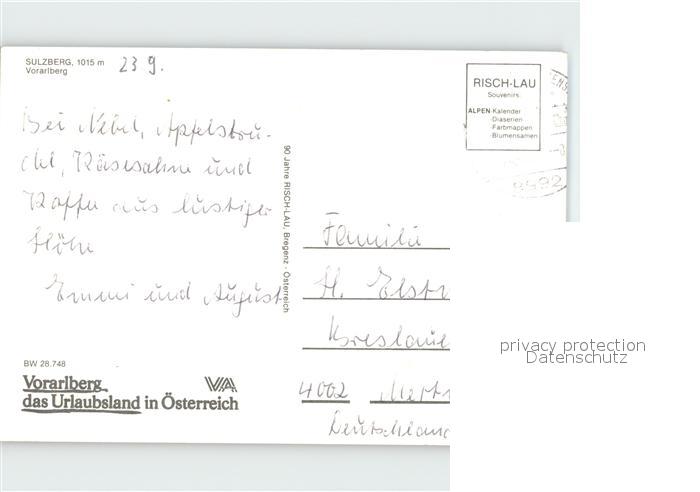 SULZBERG, 1015 m
Vorarlberg
23 9.
RISCH-LAU
Souvenirs
ALPEN-Kalender
-Diaserien
-Farbmappen
-Blumensamen
Bei Nebel, Apfelstru-
del, Käsesahne und
Kaffee aus lustiger
Höhe
Emmi und August
90 Jahre RISCH-LAU, Bregenz - Österreich
Familie
H. Elst
Breslaue
4002 Mett
Deutschland
BW 28.748
Vorarlberg
das Urlaubsland in Österreich
VA
privacy protection
Datenschutz